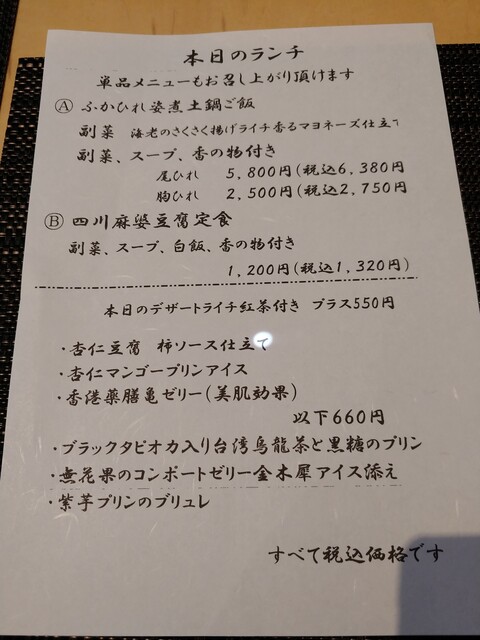 本日のランチ
単品メニューもお召し上がり頂けます
Ⓐ ふかひれ姿煮土鍋ご飯
副菜 海老のさくさく揚げライチ香るマヨネーズ仕立て
副菜、スープ、香の物付き
尾ひれ 5,800円(税込6,380円
胸ひれ 2,500円(税込2,750円
Ⓑ 四川麻婆豆腐定食
副菜、スープ、白飯、香の物付き
1,200円(税込1,320円)
本日のデザートライチ紅茶付き プラス550円
・杏仁豆腐 柿ソース仕立て
・杏仁マンゴープリンアイス
・香港薬膳亀ゼリー(美肌効果)
以下660円
・ブラックタピオカ入り台湾烏龍茶と黒糖のプリン
・無花果のコンポートゼリー金木犀アイス添え
・紫芋プリンのブリュレ
すべて税込価格です